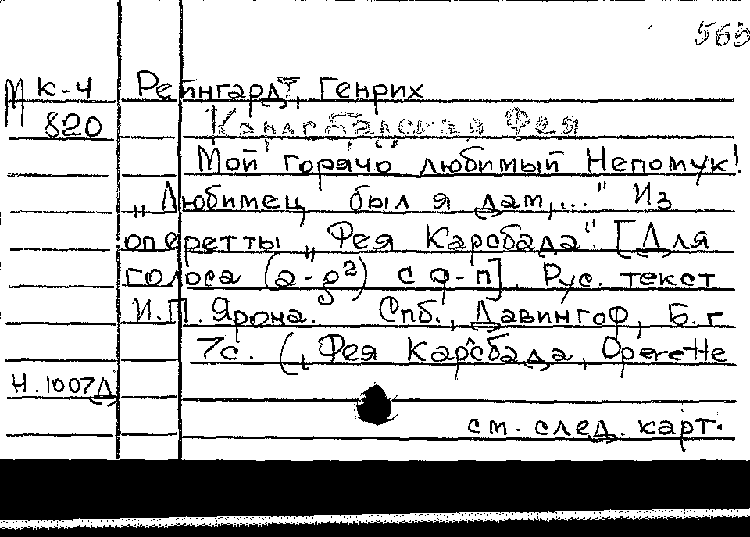 565
М к-4 Рейнгардт, Генрих
820 Карлсбадская Фея
Мой горячо любимый Непомук!
„Любимец был я дам,..." Из
оперетты „Фея Карсбада". [Для
голоса (a-g²) с ф-п]. Рус. текст
И.П. Ярона. Спб., Давингоф, Б.г
7с. („Фея Карсбада, Operette
Н.1007Д
см. след. карт.